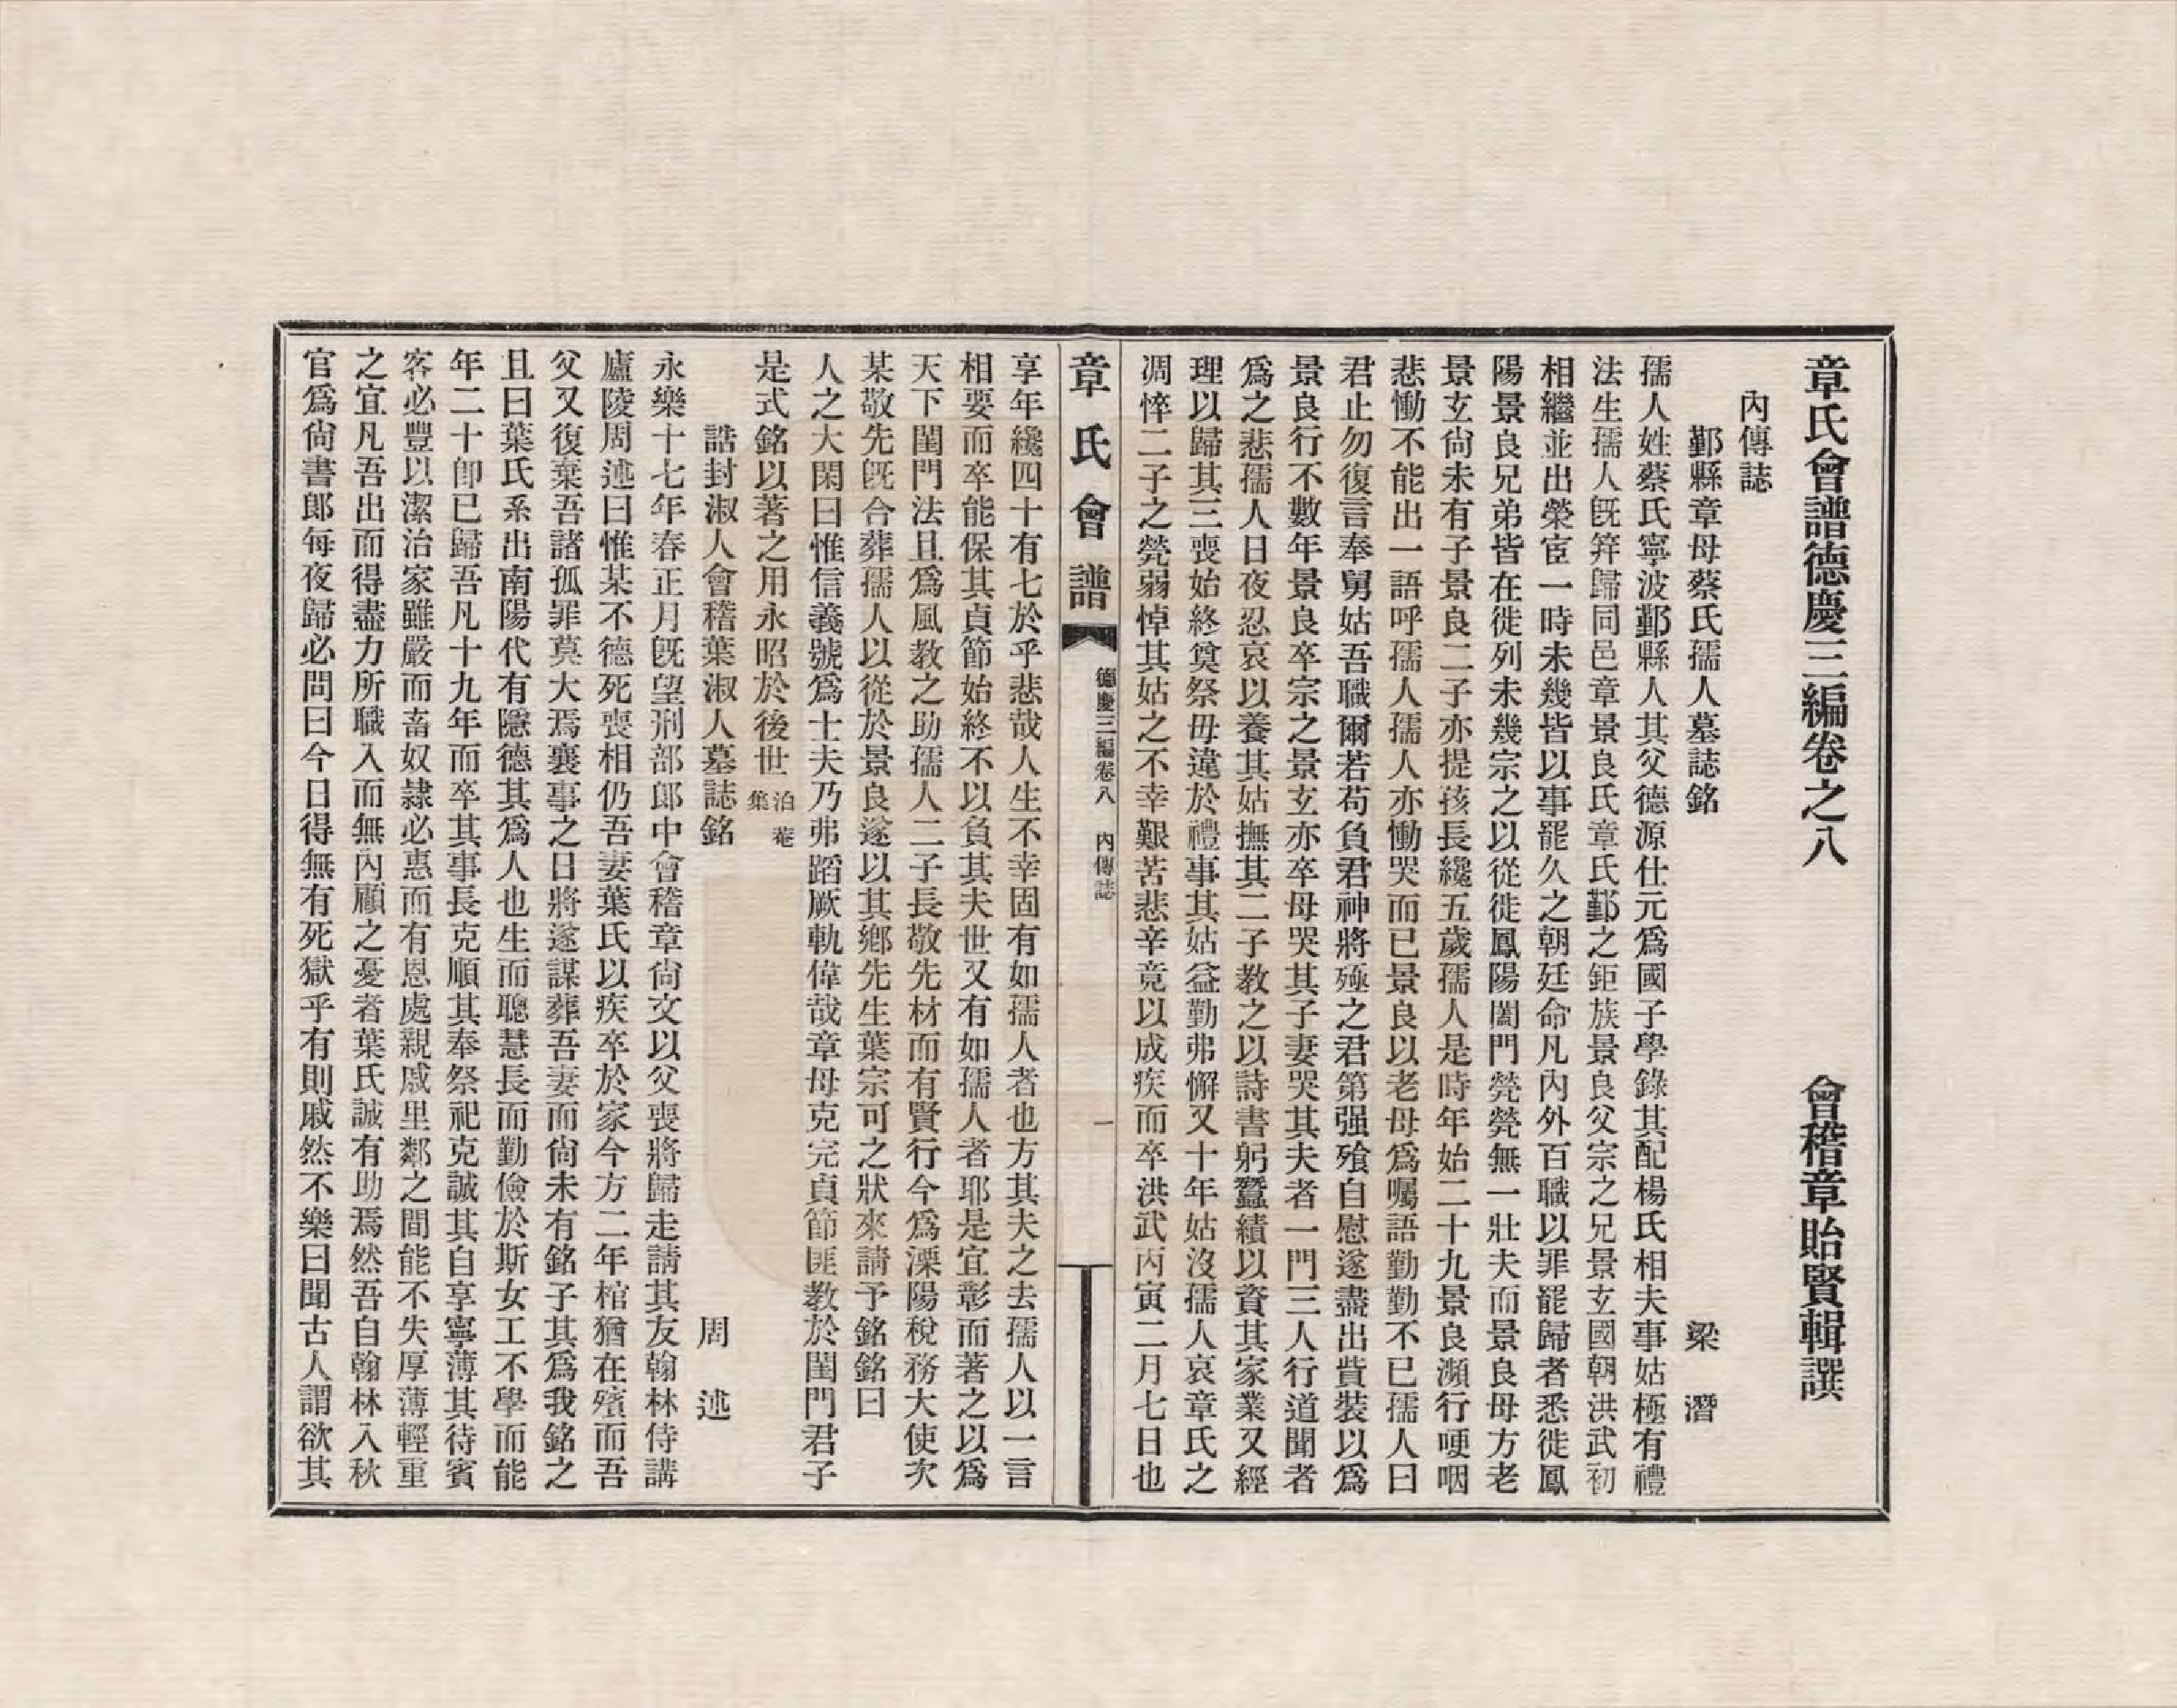 章氏會譜德慶三編卷之八　會稽章貽賢輯譔
內傳誌
鄞縣章母蔡氏孺人墓誌銘　梁潛
孺人姓蔡氏寧波鄞縣人其父德源仕元爲國子學錄其配楊氏相夫事姑極有禮
法生孺人旣筓歸同邑章景良氏章氏鄞之鉅族景良父宗之兄景玄國朝洪武初
相繼並出榮宦一時未幾皆以事罷久之朝廷命凡內外百職以罪罷歸者悉徙鳳
陽景良兄弟皆在徙列未幾宗之以從徙鳳陽闔門煢煢無一壯夫而景良母方老
景玄尙未有子景良二子亦提孩長纔五歲孺人是時年始二十九景良瀕行哽咽
悲慟不能出一語呼孺人孺人亦慟哭而已景良以老母爲囑語勤勤不已孺人曰
君止勿復言奉舅姑吾職爾若苟負君神將殛之君第强飱自慰遂盡出貲裝以爲
景良行不數年景良卒宗之景玄亦卒母哭其子妻哭其夫者一門三人行道聞者
爲之悲孺人日夜忍哀以養其姑撫其二子教之以詩書躬蠶績以資其家業又經
理以歸其三喪始終奠祭毋違於禮事其姑益勤弗懈又十年姑沒孺人哀章氏之
凋悴二子之煢弱悼其姑之不幸艱苦悲辛竟以成疾而卒洪武丙寅二月七日也
章氏會譜　德慶三編卷八　內傳誌　一
享年纔四十有七於乎悲哉人生不幸固有如孺人者也方其夫之去孺人以一言
相要而卒能保其貞節始終不以負其夫世又有如孺人者耶是宜彰而著之以爲
天下閨門法且爲風教之助孺人二子長敬先材而有賢行今爲溧陽稅務大使次
某敬先旣合葬孺人以從於景良遂以其鄉先生葉宗可之狀來請予銘銘曰
人之大閑曰惟信義號爲士夫乃弗蹈厥軌偉哉章母克完貞節匪教於閨門君子
是式銘以著之用永昭於後世泊菴集
誥封淑人會稽葉淑人墓誌銘　周述
永樂十七年春正月旣望刑部郎中會稽章尙文以父喪將歸走請其友翰林侍講
廬陵周述曰惟某不德死喪相仍吾妻葉氏以疾卒於家今方二年棺猶在殯而吾
父又復棄吾諸孤罪莫大焉襄事之日將遂謀葬吾妻而尙未有銘子其爲我銘之
且曰葉氏系出南陽代有隱德其爲人也生而聰慧長而勤儉於斯女工不學而能
年二十卽已歸吾凡十九年而卒其事長克順其奉祭祀克誠其自享寧薄其待賓
客必豐以潔治家雖嚴而畜奴隸必惠而有恩處親戚里鄰之間能不失厚薄輕重
之宜凡吾出而得盡力所職入而無內顧之憂者葉氏誠有助焉然吾自翰林入秋
官爲尙書郎每夜歸必問曰今日得無有死獄乎有則戚然不樂曰聞古人謂欲其